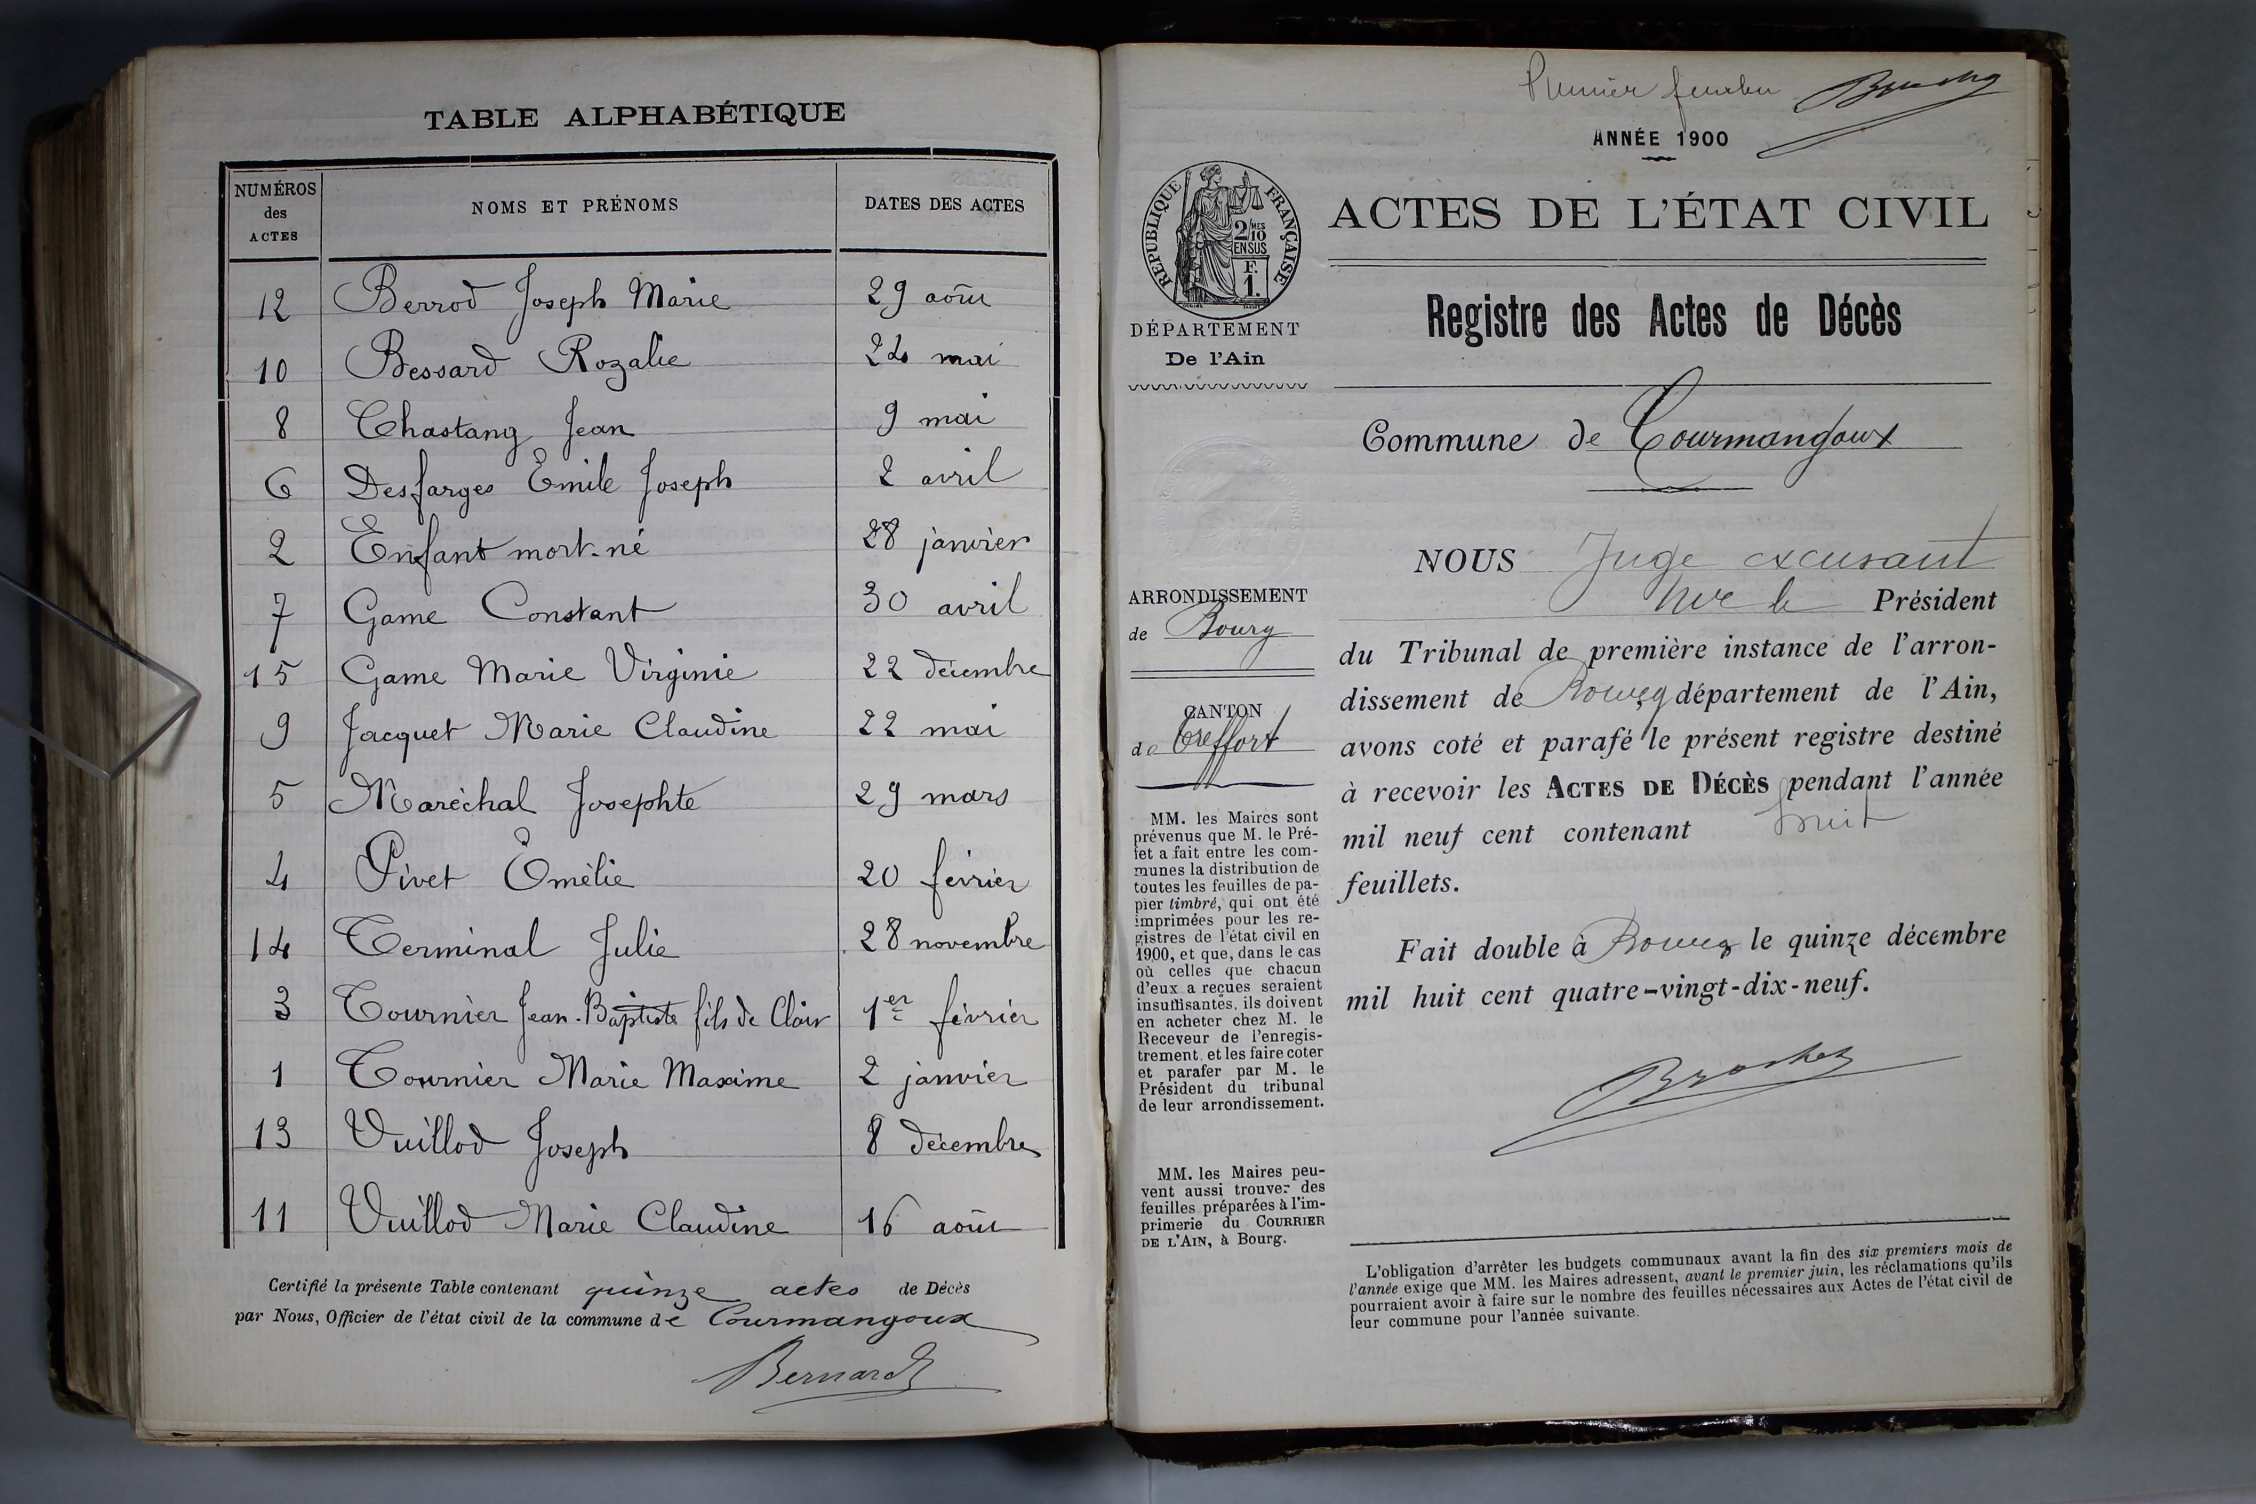 TABLE ALPHABÉTIQUE
NUMÉROS des ACTES NOMS ET PRÉNOMS DATES DES ACTES
12 Berrod Joseph Marie 29 août
10 Bessard Rozalie 24 mai
8 Chastang Jean 9 mai
6 Desfarges Emile Joseph 2 avril
2 Enfant mort-né 28 janvier
7 Game Constant 30 avril
15 Game Marie Virginie 22 décembre
9 Jacquet Marie Claudine 22 mai
5 Maréchal Josephte 29 mars
4 Pivet Emélie 20 février
14 Terminal Julie 28 novembre
3 Tournier Jean-Baptiste fils de Clair 1er février
1 Tournier Marie Maxime 2 janvier
13 Vuillod Joseph 8 décembre
11 Vuillod Marie Claudine 16 août
Certifié la présente Table contenant quinze actes de Décès
par Nous, Officier de l'état civil de la commune de Courmangoux
Bernard
Premier feuillet
ANNÉE 1900
RÉPUBLIQUE FRANÇAISE
2/10 MES
EN SUS
F.
1.
DÉPARTEMENT
De l'Ain
ARRONDISSEMENT
de Bourg
CANTON
de Treffort
MM. les Maires sont
prévenus que M. le Pré-
fet a fait entre les com-
munes la distribution de
toutes les feuilles de pa-
pier timbré, qui ont été
imprimées pour les re-
gistres de l'état civil en
1900, et que, dans le cas
où celles que chacun
d'eux a reçues seraient
insuffisantes, ils doivent
en acheter chez M. le
Receveur de l'enregis-
trement, et les faire coter
et parafer par M. le
Président du tribunal
de leur arrondissement.
MM. les Maires peu-
vent aussi trouver des
feuilles préparées à l'im-
primerie du COURRIER
DE L'AIN, à Bourg.
ACTES DE L'ÉTAT CIVIL
Registre des Actes de Décès
Commune de Courmangoux
NOUS Juge excusant
Mr le Président
du Tribunal de première instance de l'arron-
dissement de Bourg département de l'Ain,
avons coté et parafé le présent registre destiné
à recevoir les ACTES DE DÉCÈS pendant l'année
mil neuf cent contenant huit
feuillets.
Fait double à Bourg le quinze décembre
mil huit cent quatre-vingt-dix-neuf.
L'obligation d'arrêter les budgets communaux avant la fin des six premiers mois de
l'année exige que MM. les Maires adressent, avant le premier juin, les réclamations qu'ils
pourraient avoir à faire sur le nombre des feuilles nécessaires aux Actes de l'état civil de
leur commune pour l'année suivante.